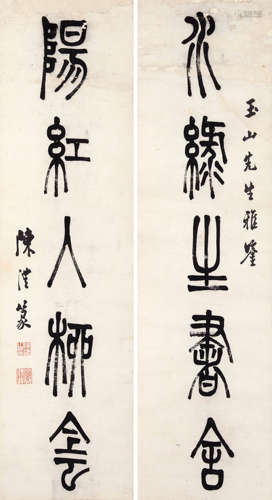 玉山先生雅鑒
水綠生書舍
陽紅入
陳澧篆